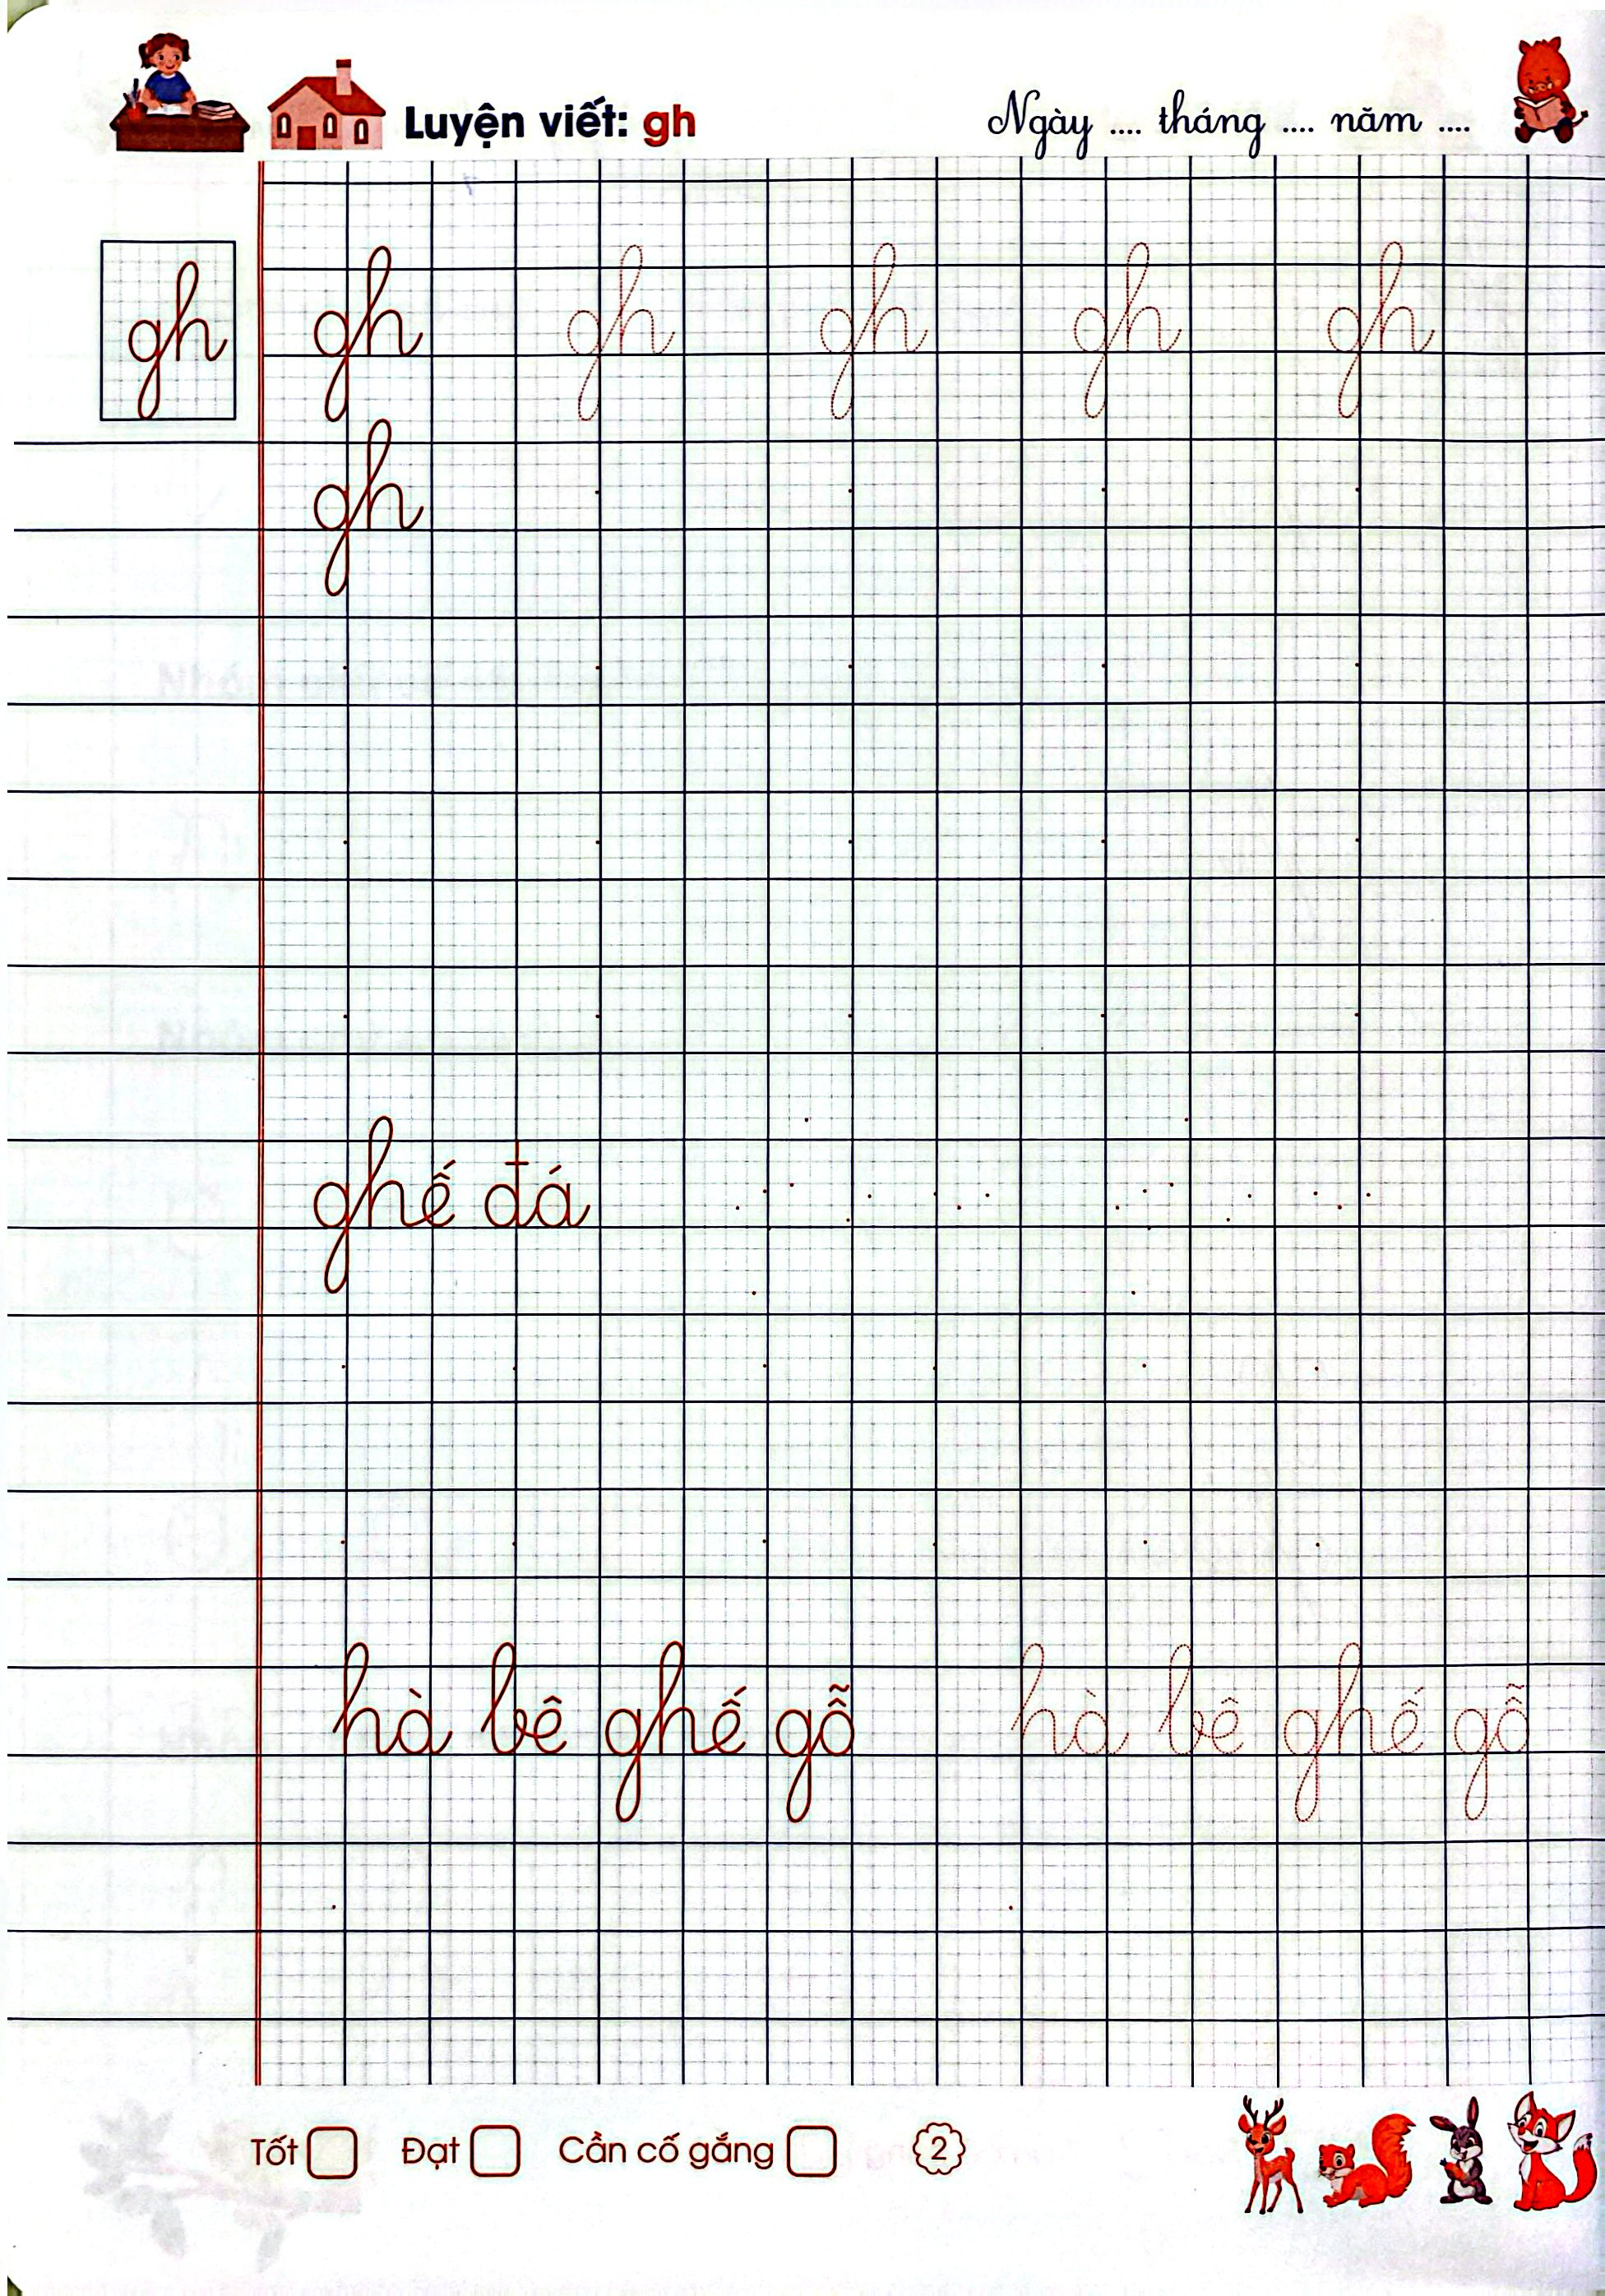 Luyện viết: gh
Ngày .... tháng .... năm ....
gh
gh gh gh gh gh
gh
ghế đá
hà bê ghế gỗ hà bê ghế gỗ
Tốt Đạt Cần cố gắng 2